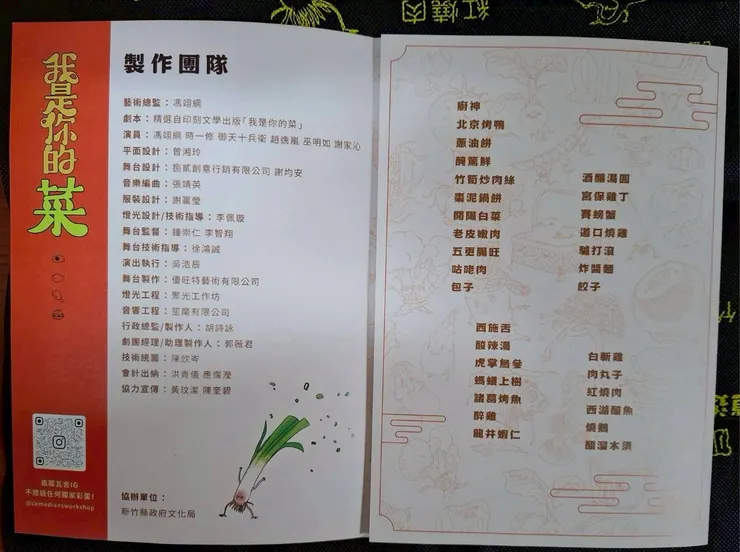 紅燒肉
我是你的菜
製作團隊
藝術總監：馮翊綱
劇本：精選自印刻文學出版「我是你的菜」
演員：馮翊綱 時一修 御天十兵衛 趙逸嵐 巫明如 謝家沁
平面設計：曾湘玲
舞台設計：捌貳創意行銷有限公司 謝均安
音樂編曲：張靖英
服裝設計：謝宣瑩
燈光設計/技術指導：李佩璇
舞台監督：鍾崇仁 李智翔
舞台技術指導：徐鴻誠
演出執行：吳浩辰
舞台製作：優旺特藝術有限公司
燈光工程：聚光工作坊
音響工程：笙窠有限公司
行政總監/製作人：胡詩詠
劇團經理/助理製作人：郭薇君
技術統籌：陳欣岑
會計出納：洪青儀 應傑瀅
協力宣傳：黃玟潔 陳奎碧
協辦單位：
新竹縣政府文化局
追蹤瓦舍IG
不錯過任何獨家彩蛋！
@comediansworkshop
廚神
北京烤鴨
蔥油餅
醃篤鮮
竹筍炒肉絲
棗泥鍋餅
開陽白菜
老皮嫩肉
五更腸旺
咕咾肉
包子
酒釀湯圓
宮保雞丁
賽螃蟹
道口燒雞
驢打滾
炸醬麵
餃子
西施舌
酸辣湯
虎掌烏參
螞蟻上樹
諸葛烤魚
醉雞
龍井蝦仁
白斬雞
肉丸子
紅燒肉
西湖醋魚
燒鵝
醋溜木須